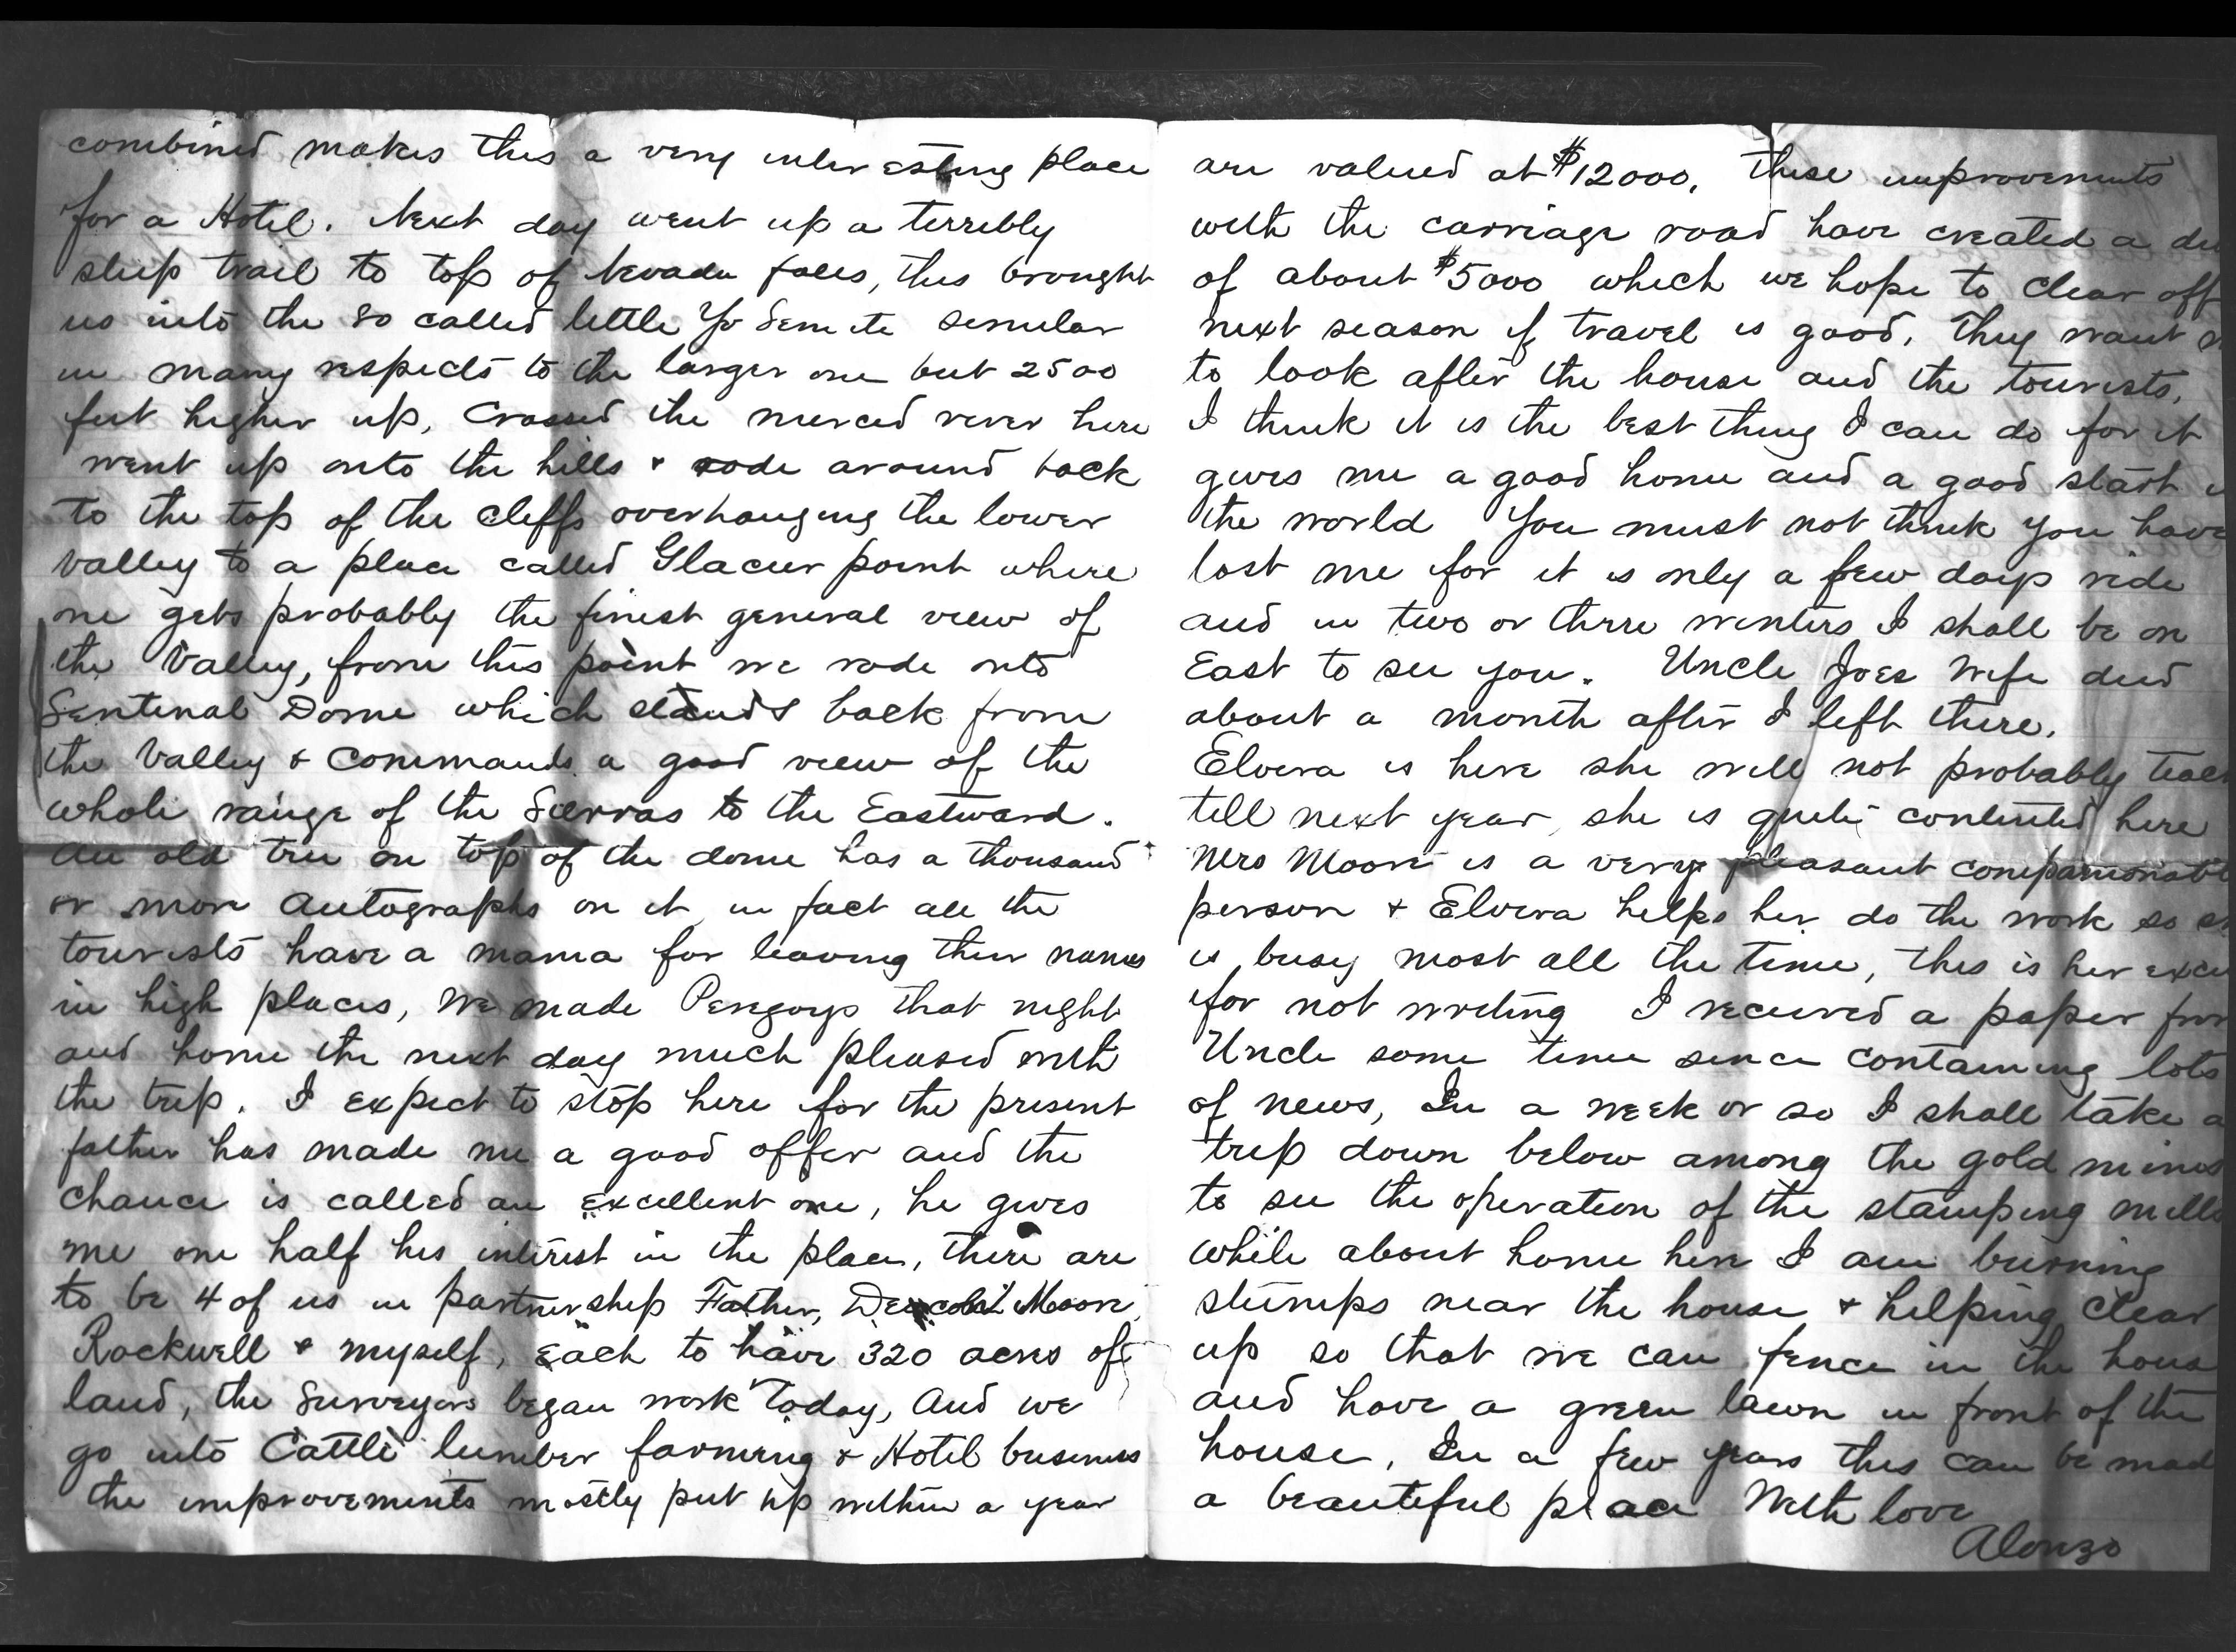 combined makes this a very interesting place
for a Hotel. Next day went up a terribly
steep trail to top of Nevada falls, this brought
us into the so called little Yo Semite similar
in many respects to the larger one but 2500
feet higher up, Crossed the merced river here
went up onto the hills & rode around back
to the top of the cliffs overhanging the lower
valley to a place called Glacier point where
one gets probably the finest general view of
the Valley, from this point we rode onto
Sentinal Dome which stands back from
the Valley & Commands a good view of the
whole range of the Sierras to the Eastward.
An old tree on top of the dome has a thousand
or more Autographs on it, in fact all the
tourists have a mania for leaving their names
in high places, We made Peregoys that night
and home the next day much pleased with
the trip. I expect to stop here for the present
father has made me a good offer and the
chance is called an excellent one, he gives
me one half his interest in the place, there are
to be 4 of us in partnership Father, Moore
Rockwell & myself, Each to have 320 acres of
land, the Surveyors began work today, And we
go into Cattle lumber farming & Hotel business
the improvements mostly put up within a year
are valued at $12000. These improvements
with the carriage road have created a
of about $5000 which we hope to clear off
next season if travel is good. They want
to look after the house and the tourists.
I think it is the best thing I can do for it
gives me a good home and a good start
the world You must not think you have
lost me for it is only a few days ride
and in two or three winters I shall be on
East to see you. Uncle Joes Wife died
about a month after I left there.
Elvira is here she will not probably teach
till next year, she is quite contented here
Mrs Moore is a very pleasant companionable
person & Elvira helps her do the work so
is busy most all the time, this is her
for not writing I received a paper from
Uncle some time since containing lots
of news, In a week or so I shall take a
trip down below among the gold mines
to see the operation of the stamping mills
while about home here I am burning
stumps near the house & helping clear
up so that we can fence in the house
and have a green lawn in front of the
house, In a few years this can be made
a beautiful place With love
Alonzo